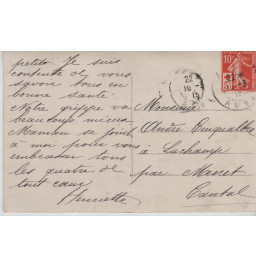 petits. Je suis
contente et vous
savoir tous en
bonne santé.
Notre grippe va
beaucoup mieux
Maman se joint
à moi pour vous
embrasser tous
les quatre de
tout cœur
Henriette
Monsieur
André
à Lachamp
par Masset
Cantal
22
10